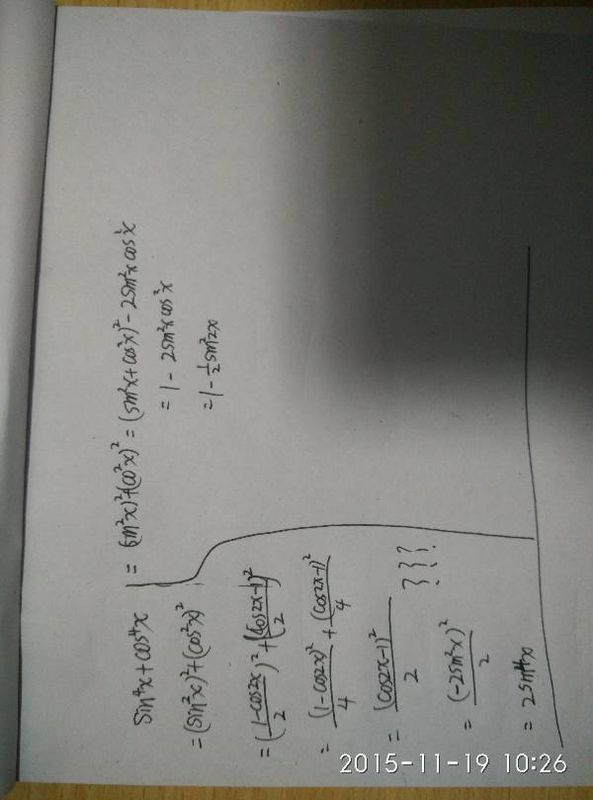 sin⁴x + cos⁴x
= (sin²x)² + (cos²x)²
= ((1-cos2x)/2)² + ((cos2x-1)/2)²
= (1-cos2x)²/4 + (cos2x-1)²/4
= (cos2x-1)²/2 ???
= (-2sin²x)²/2
= 2sin⁴x
= (sin²x)²+(cos²x)² = (sin²x+cos²x)² - 2sin²x cos²x
= 1 - 2sin²x cos²x
= 1 - ½ sin²2x
2015-11-19 10:26